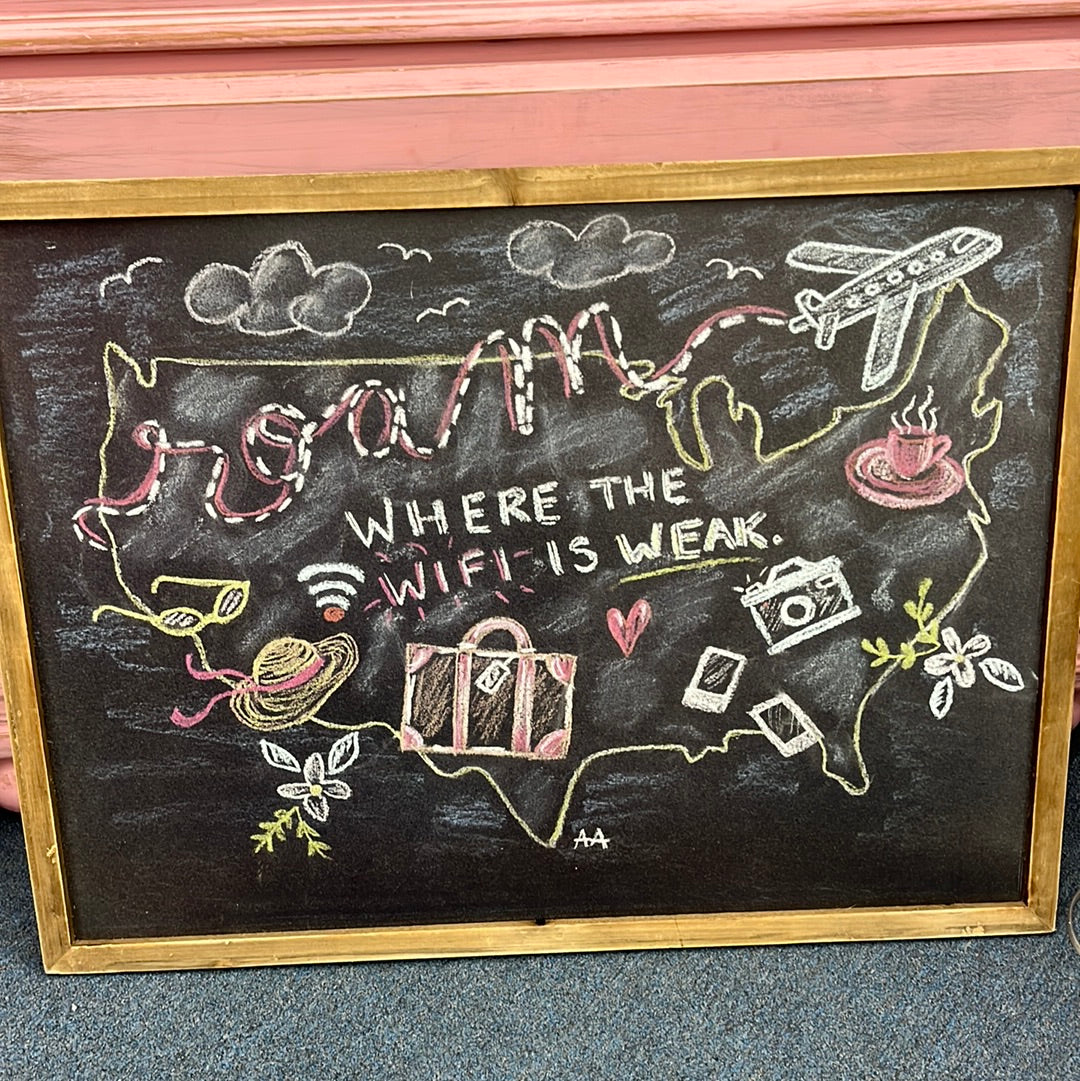 roam
WHERE THE
WIFI IS WEAK.
AA